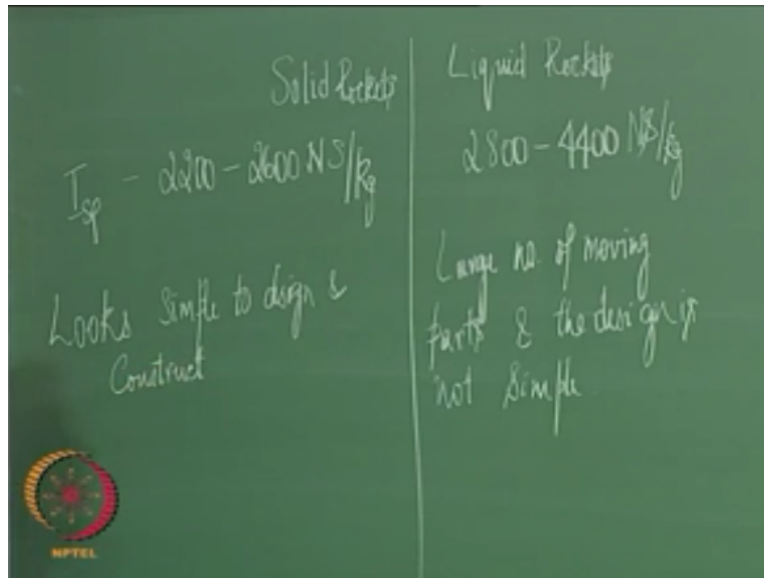 Solid Rockets
I_sp - 2200 - 2600 NS/kg
Looks simple to design &
Construct
Liquid Rockets
2800 - 4400 NS/kg
Large no. of moving
parts & the design is
not simple.
NPTEL